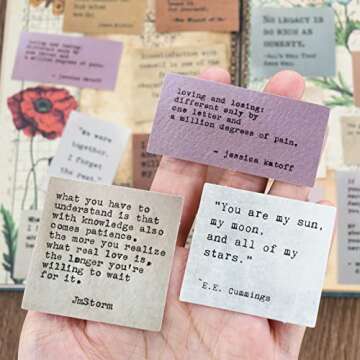 NO LEGACY IS
SO RICH AS
HONESTY.
loving and losing:
different only by
one letter and
a million degrees of pain.
- jessica Katoff
loving and losing:
different only by
one letter and
a million degrees of pain.
- jessica Katoff
"As were
together,
I forget
the rest
what you have to
understand is that
with knowledge also
comes patience.
the more you realize
what real love is,
the longer you're
willing to wait
for it.
JmStorm
"You are my sun,
my moon,
and all of my
stars."
~E.E. Cummings